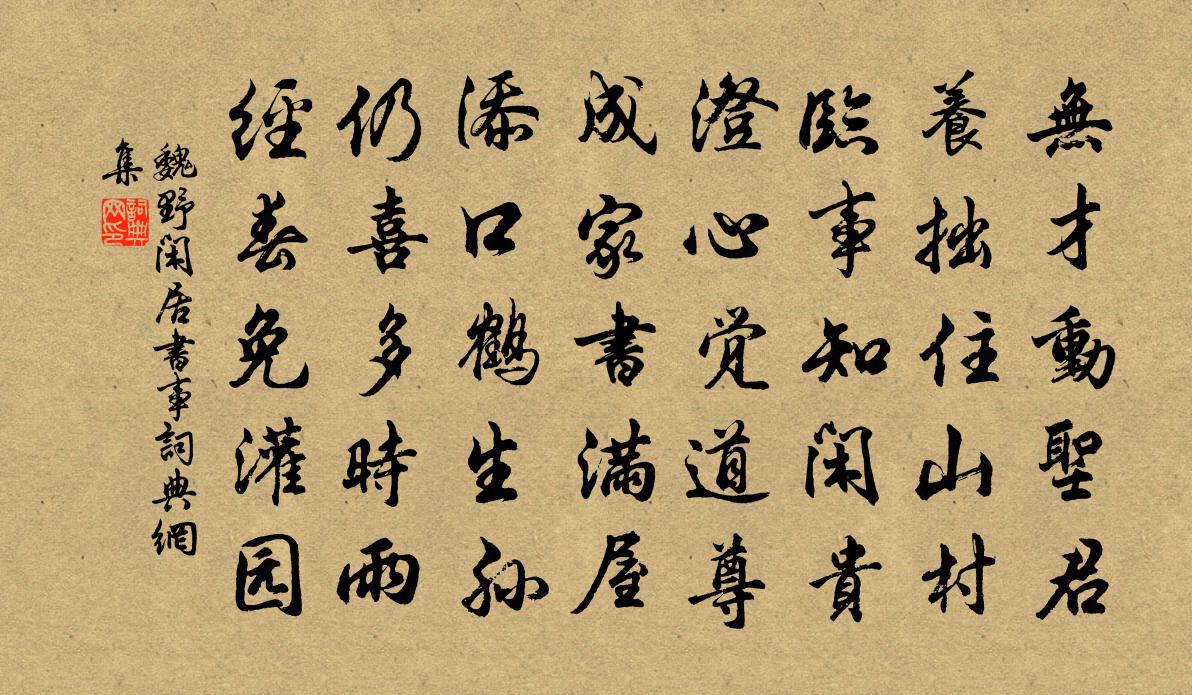 無才動聖君
養拙住山村
臨事知閑貴
澄心觉道尊
成家書满屋
添口鶴生孙
仍喜多時雨
經春免灌园
魏野閑居書事詞典網
集
詞典
网印